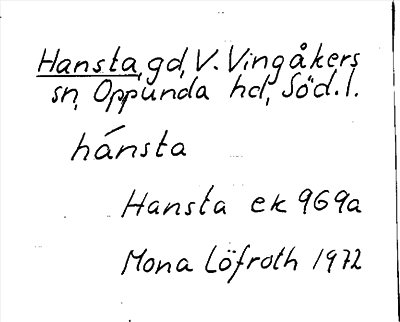 Hansta, gd, V. Vingåkers
sn, Oppunda hd, Söd. l.
hánsta
Hansta ek 969a
Mona Löfroth 1972